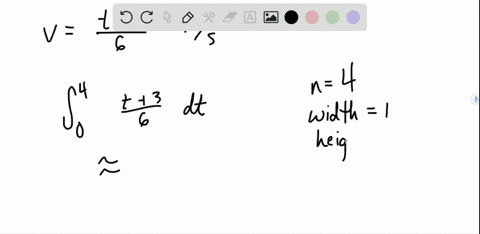 v = t/6 /s
∫₀⁴ t+3/6 dt
≈
n = 4
width = 1
heig